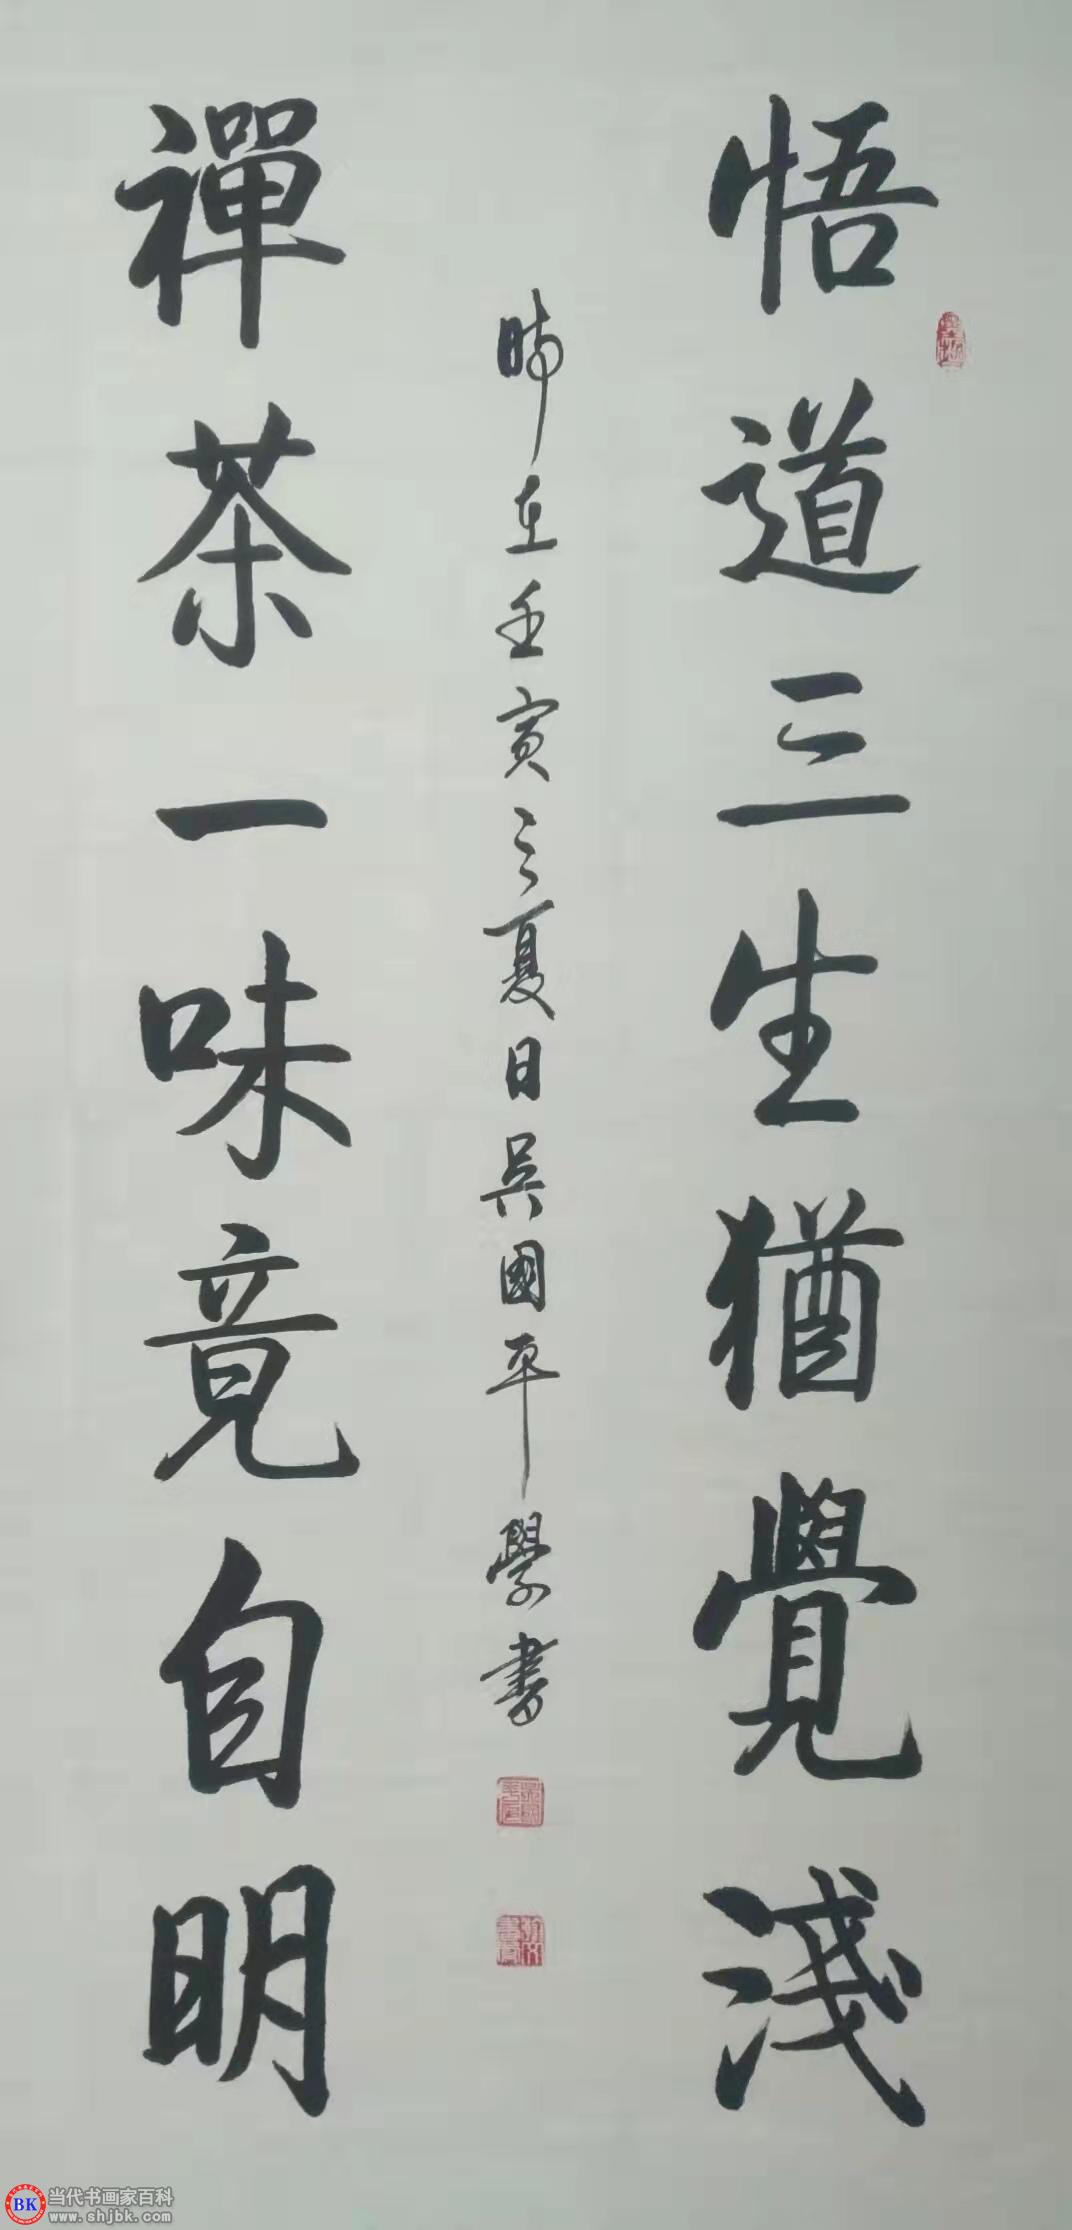 悟道三生猶覺淺
時在壬寅之夏日吳國平學書
禪茶一味竟自明
當代书画家百科
www.shjbk.com
BK